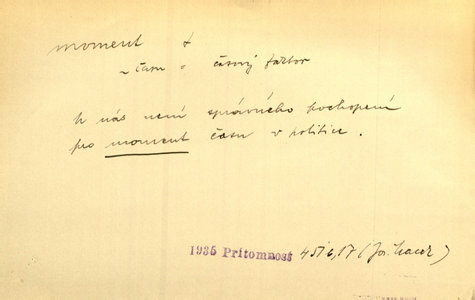 moment
~ času = časový faktor
U nás není správného pochopení
pro moment času v politice.
1935 Přítomnost